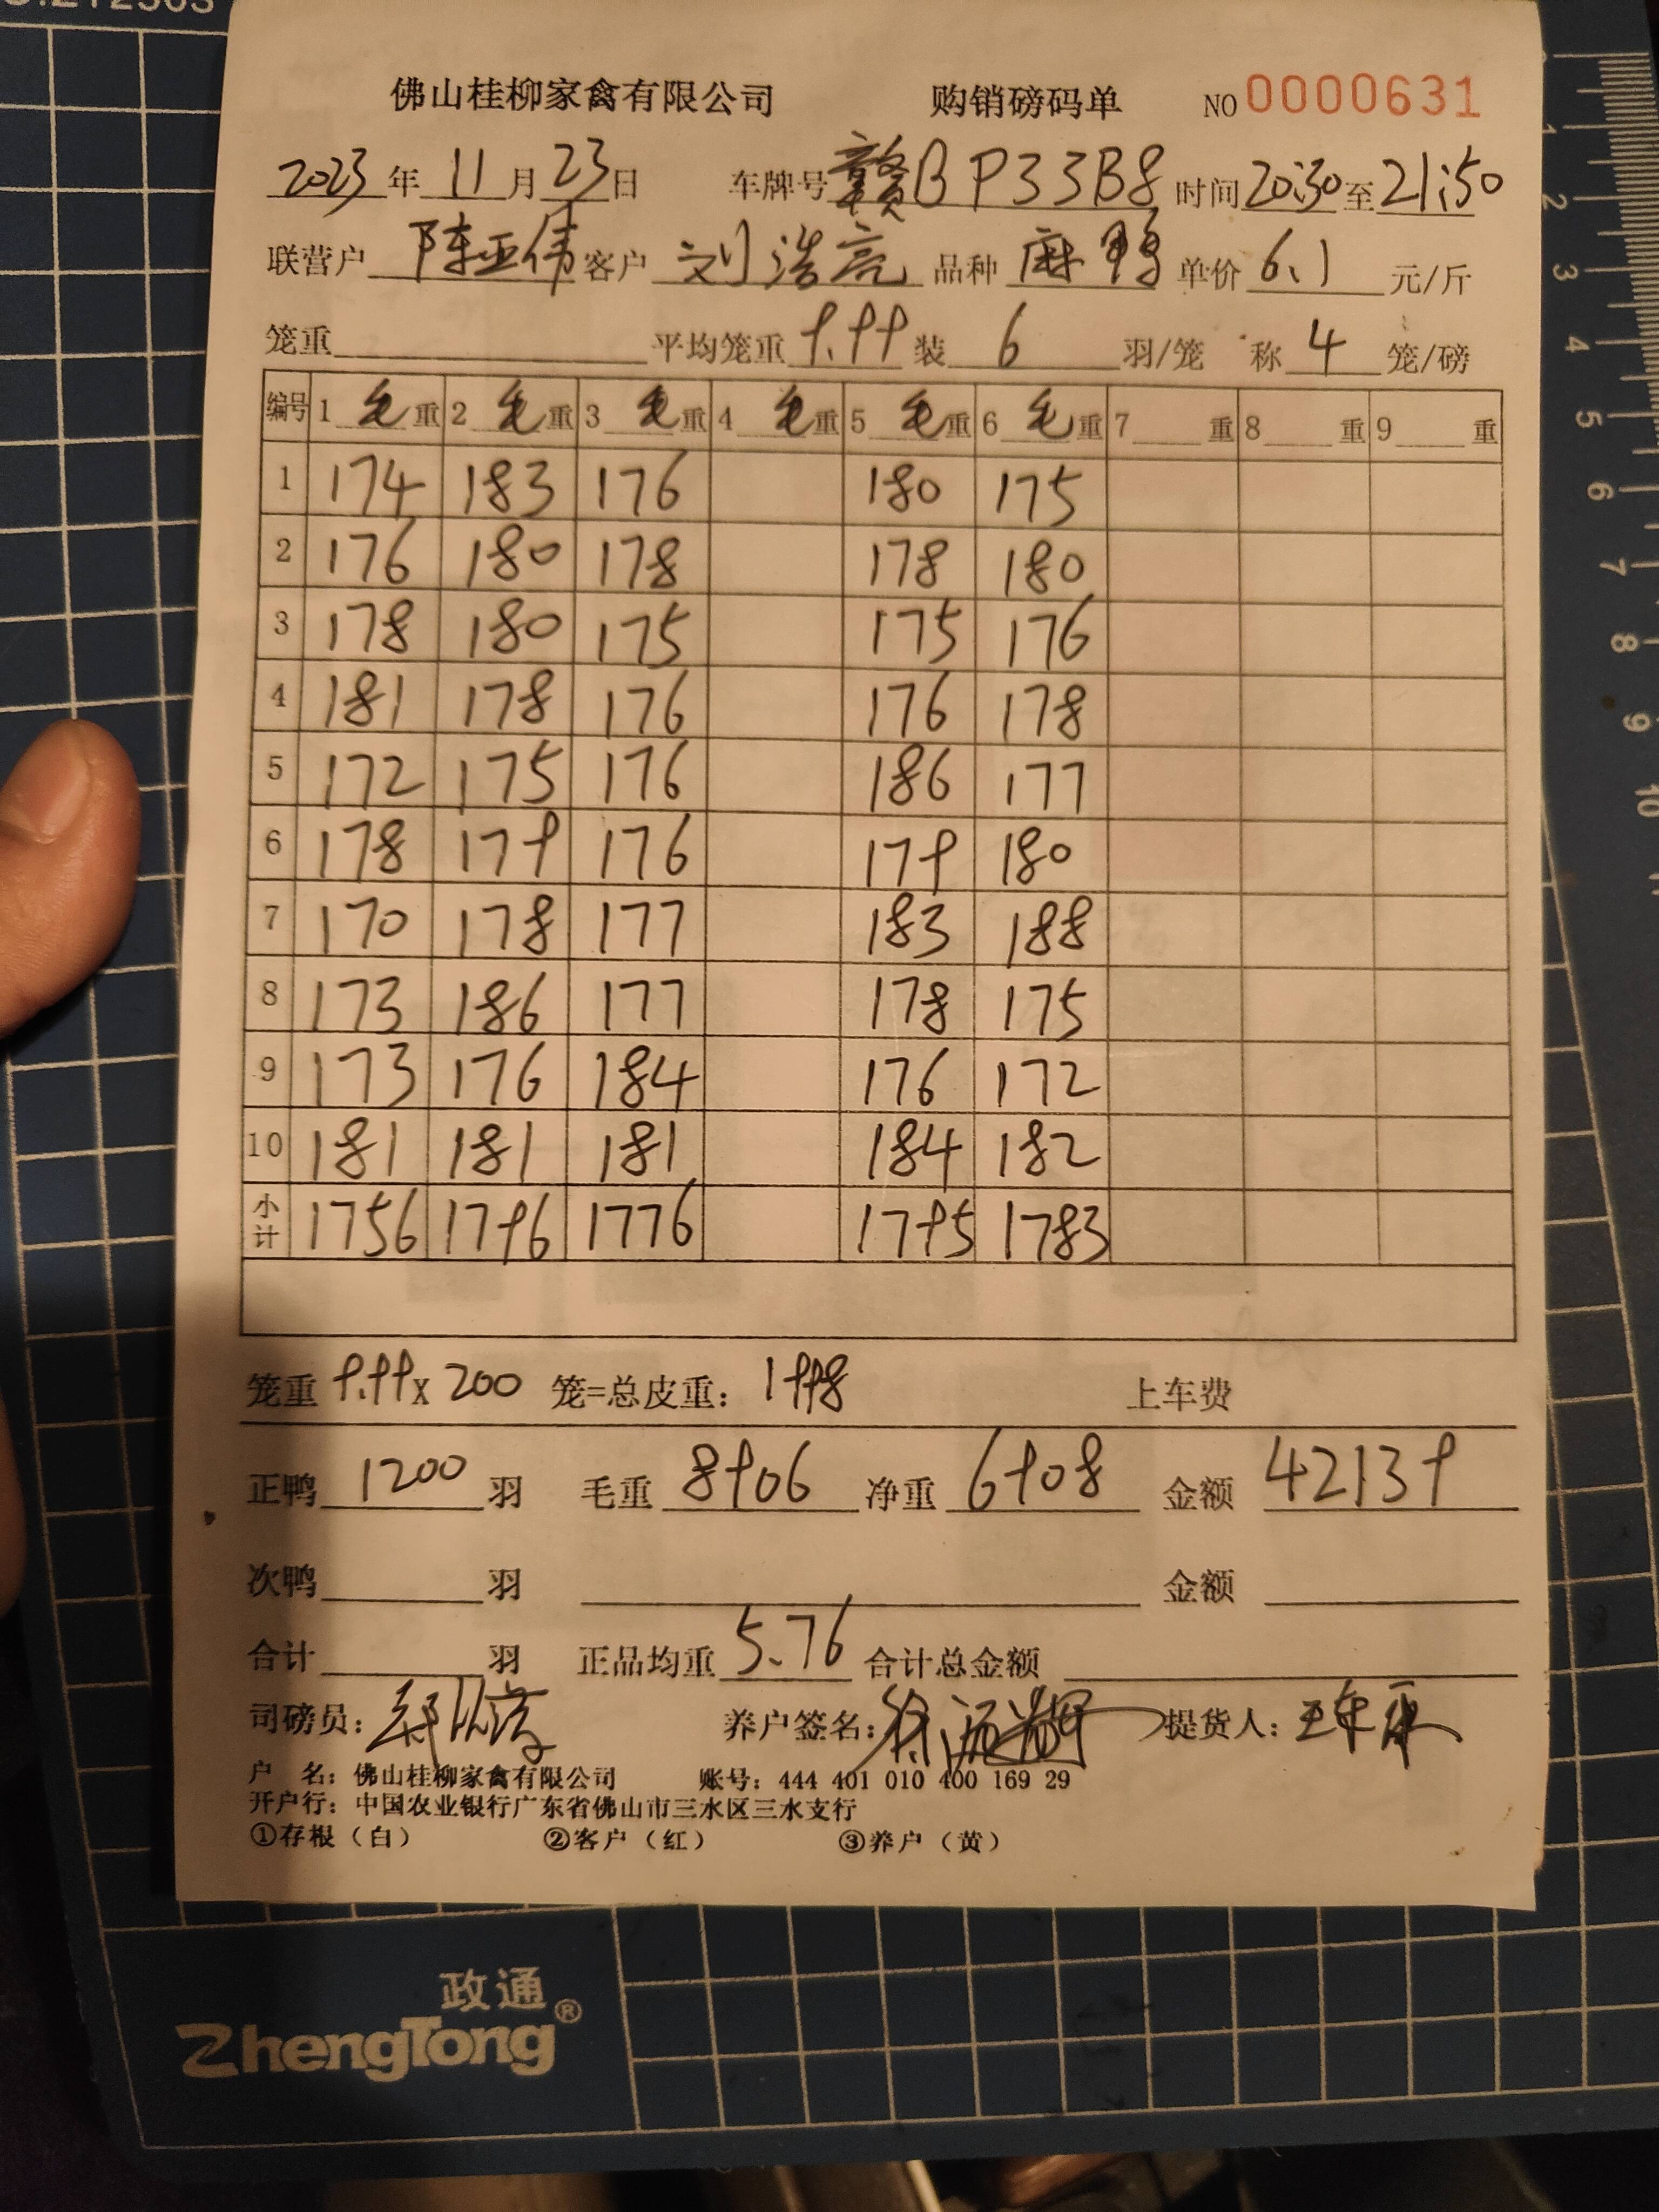 佛山桂柳家禽有限公司 购销磅码单 NO 0000631
2023年11月23日 车牌号赣BP33B8 时间20:30至21:50
联营户 陈亚伟 客户 刘浩亮 品种 麻鸭 单价 6.1 元/斤
笼重 平均笼重 9.99 装 6 羽/笼 称 4 笼/磅
编号 1 毛重 2 毛重 3 毛重 4 毛重 5 毛重 6 毛重 7 重 8 重 9 重
1 174 183 176 180 175
2 176 180 178 178 180
3 178 180 175 175 176
4 181 178 176 176 178
5 172 175 176 186 177
6 178 179 176 179 180
7 170 178 177 183 188
8 173 186 177 178 175
9 173 176 184 176 172
10 181 181 181 184 182
小计 1756 1796 1776 1795 1783
笼重 9.99 x 200 笼=总皮重: 1998 上车费
正鸭 1200 羽 毛重 8906 净重 6908 金额 42139
次鸭 羽 金额
合计 羽 正品均重 5.76 合计总金额
司磅员: 养户签名: 提货人:
户 名: 佛山桂柳家禽有限公司 账号: 444 401 010 400 169 29
开户行: 中国农业银行广东省佛山市三水区三水支行
①存根（白） ②客户（红） ③养户（黄）
1
2
3
4
5
6
7
8
9
10
政通
ZhengTong®